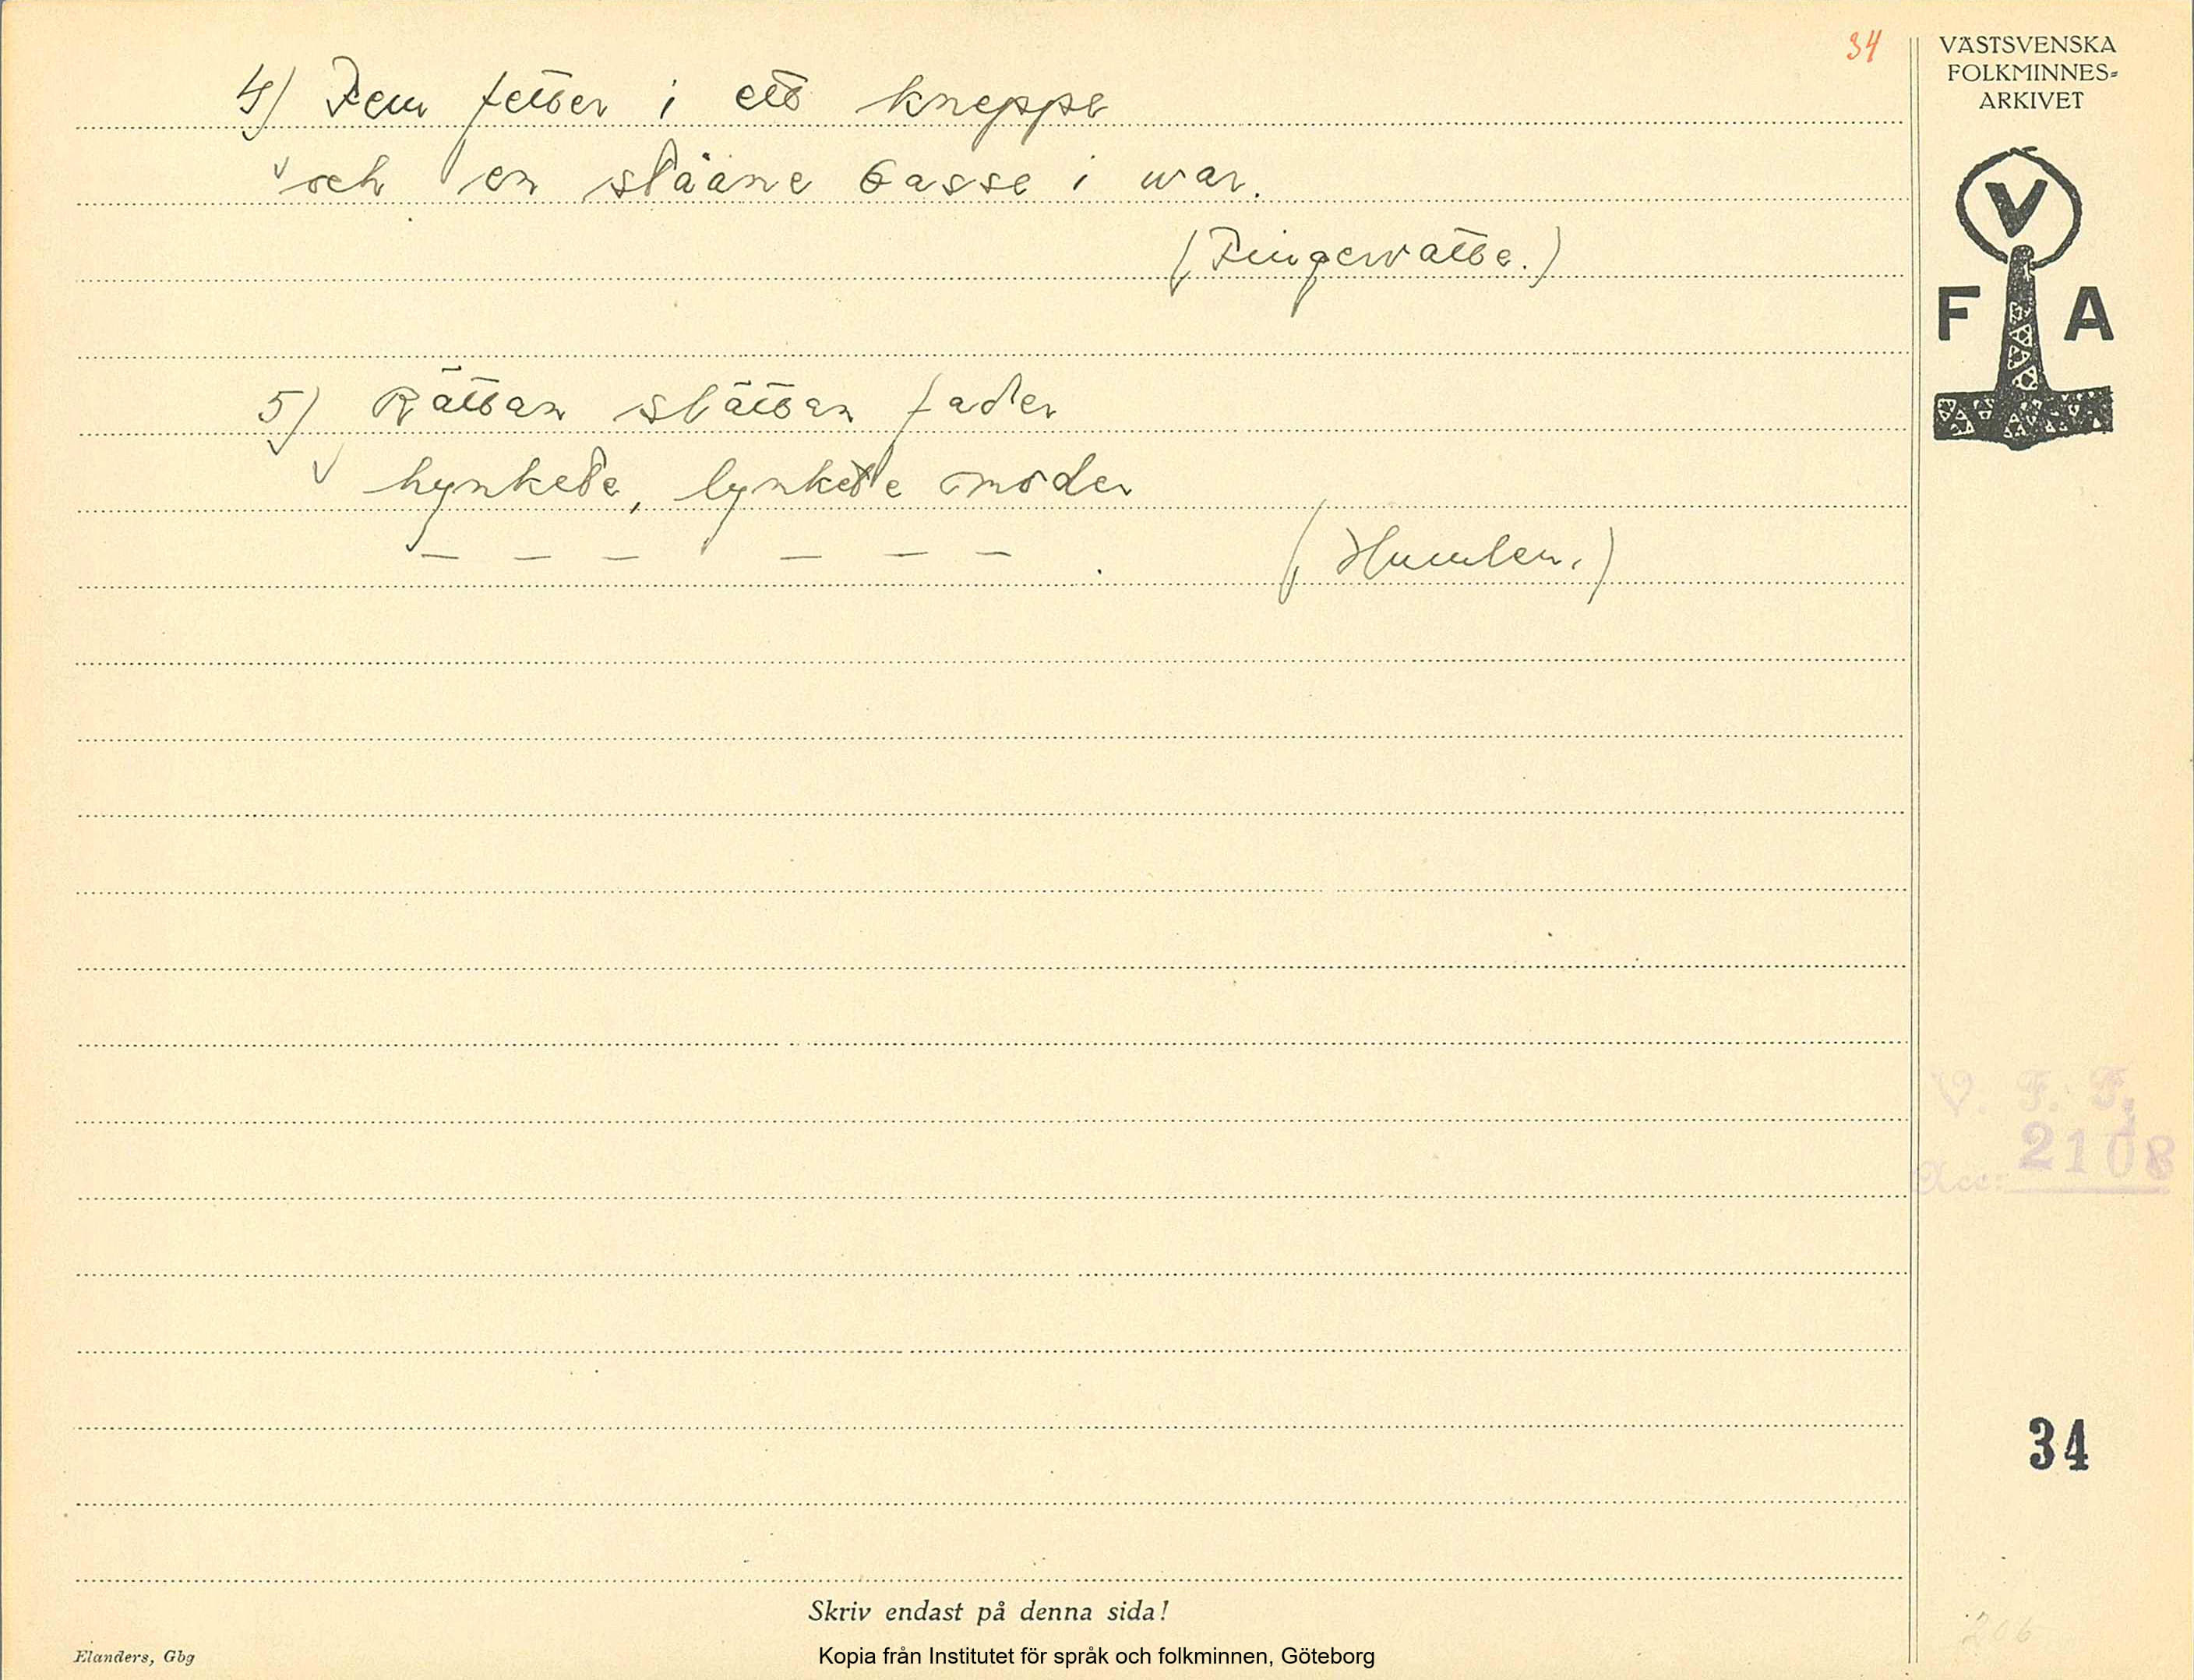 34
VÄSTSVENSKA
FOLKMINNES-
ARKIVET
4) Fem fetter i ett kneppe
och en basse i war.
(Fingervatte.)
V
F A
5) Rättan slättan fader
hynkede, lynkede moder
— — — — — — . (Humlen.)
V. F. F.
Acc: 2108
34
206
Skriv endast på denna sida!
Elanders, Gbg
Kopia från Institutet för språk och folkminnen, Göteborg